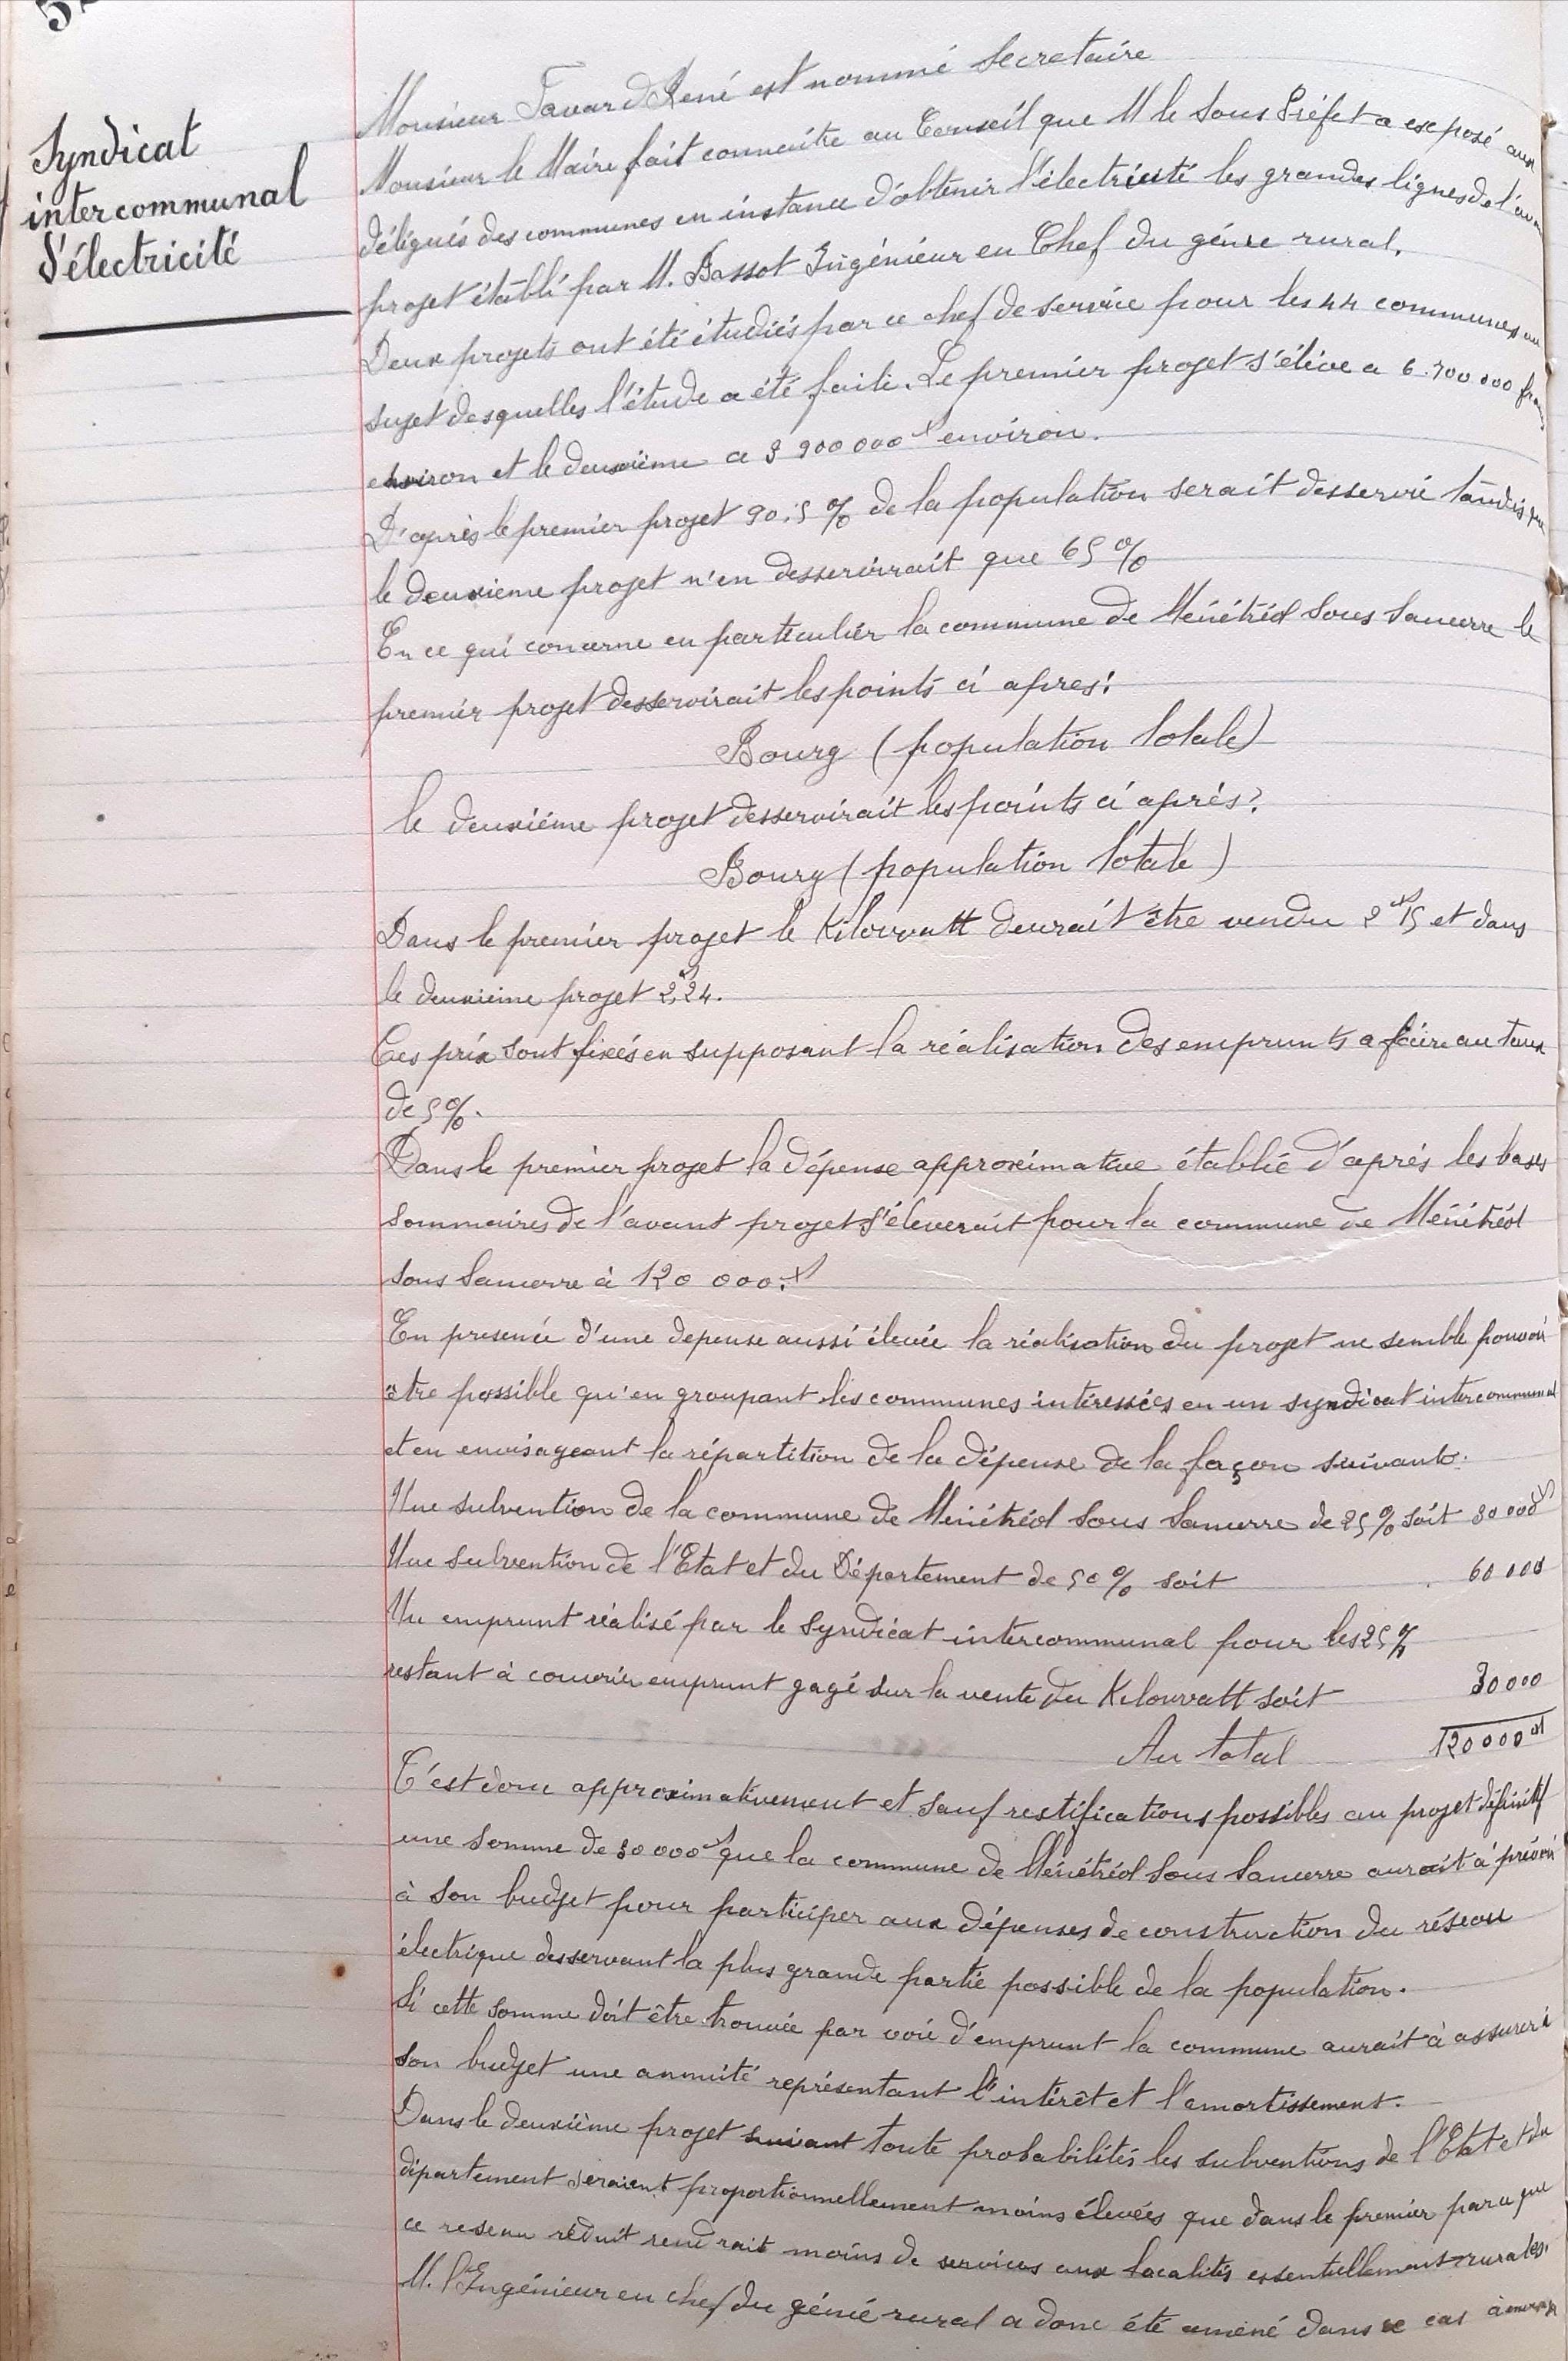 Syndicat
intercommunal
d'électricité
Monsieur Tavard René est nommé Secretaire
Monsieur le Maire fait connaitre au Conseil que M le Sous Préfet a exposé aux
délégués des communes en instance d'obtenir l'électricité les grandes lignes de l'avant
projet établi par M. Bassot Ingénieur en Chef du génie rural.
Deux projets ont été étudiés par ce chef de service pour les 44 communes au
sujet desquelles l'étude a été faite. Le premier projet s'élève a 6.700 000 francs
environ et le deuxième a 3 900 000 f environ.
D'après le premier projet 90.5 % de la population serait desservie tandis que
le deuxieme projet n'en desservirait que 65 %
En ce qui concerne en particulier la commune de Ménétréol Sous Sancerre le
premier projet desservirait les points ci apres:
Bourg (population totale)
le deuxième projet desservirait les points ci après:
Bourg (population totale)
Dans le premier projet le Kilowatt devrait être vendu 2 f 15 et dans
le deuxieme projet 2 f 24.
Ces prix sont fixés en supposant la réalisation des emprunts a faire au taux
de 5 %.
Dans le premier projet la dépense approximative établie d'après les bases
sommaires de l'avant projet s'éleverait pour la commune de Ménétréol
sous Sancerre à 120 000. f
En presence d'une depense aussi élevée la réalisation du projet ne semble pouvoir
être possible qu'en groupant les communes intéressées en un syndicat intercommunal
et en envisageant la répartition de la dépense de la façon suivante.
Une subvention de la commune de Ménétréol Sous Sancerre de 25 % soit 30 000 f
Une subvention de l'Etat et du Département de 50 % soit 60 000
Un emprunt réalisé par le Syndicat intercommunal pour les 25 %
restant à couvrir emprunt gagé sur la vente du Kilowatt soit 30 000
Au total 120 000 f
C'est donc approximativement et sauf rectifications possibles au projet définitif
une somme de 30 000 f que la commune de Ménétréol Sous Sancerre aurait à prévoir
à son budget pour participer aux dépenses de construction du réseau
électrique desservant la plus grande partie possible de la population.
Si cette somme doit être trouvée par voie d'emprunt la commune aurait à assurer à
son budget une annuité représentant l'intérêt et l'amortissement.
Dans le deuxième projet suivant toute probabilités les subventions de l'Etat et du
département seraient proportionnellement moins élevées que dans le premier parce que
ce reseau réduit rendrait moins de services aux localités essentiellement rurales.
M. l'Ingénieur en chef du génie rural a donc été amené dans ce cas à